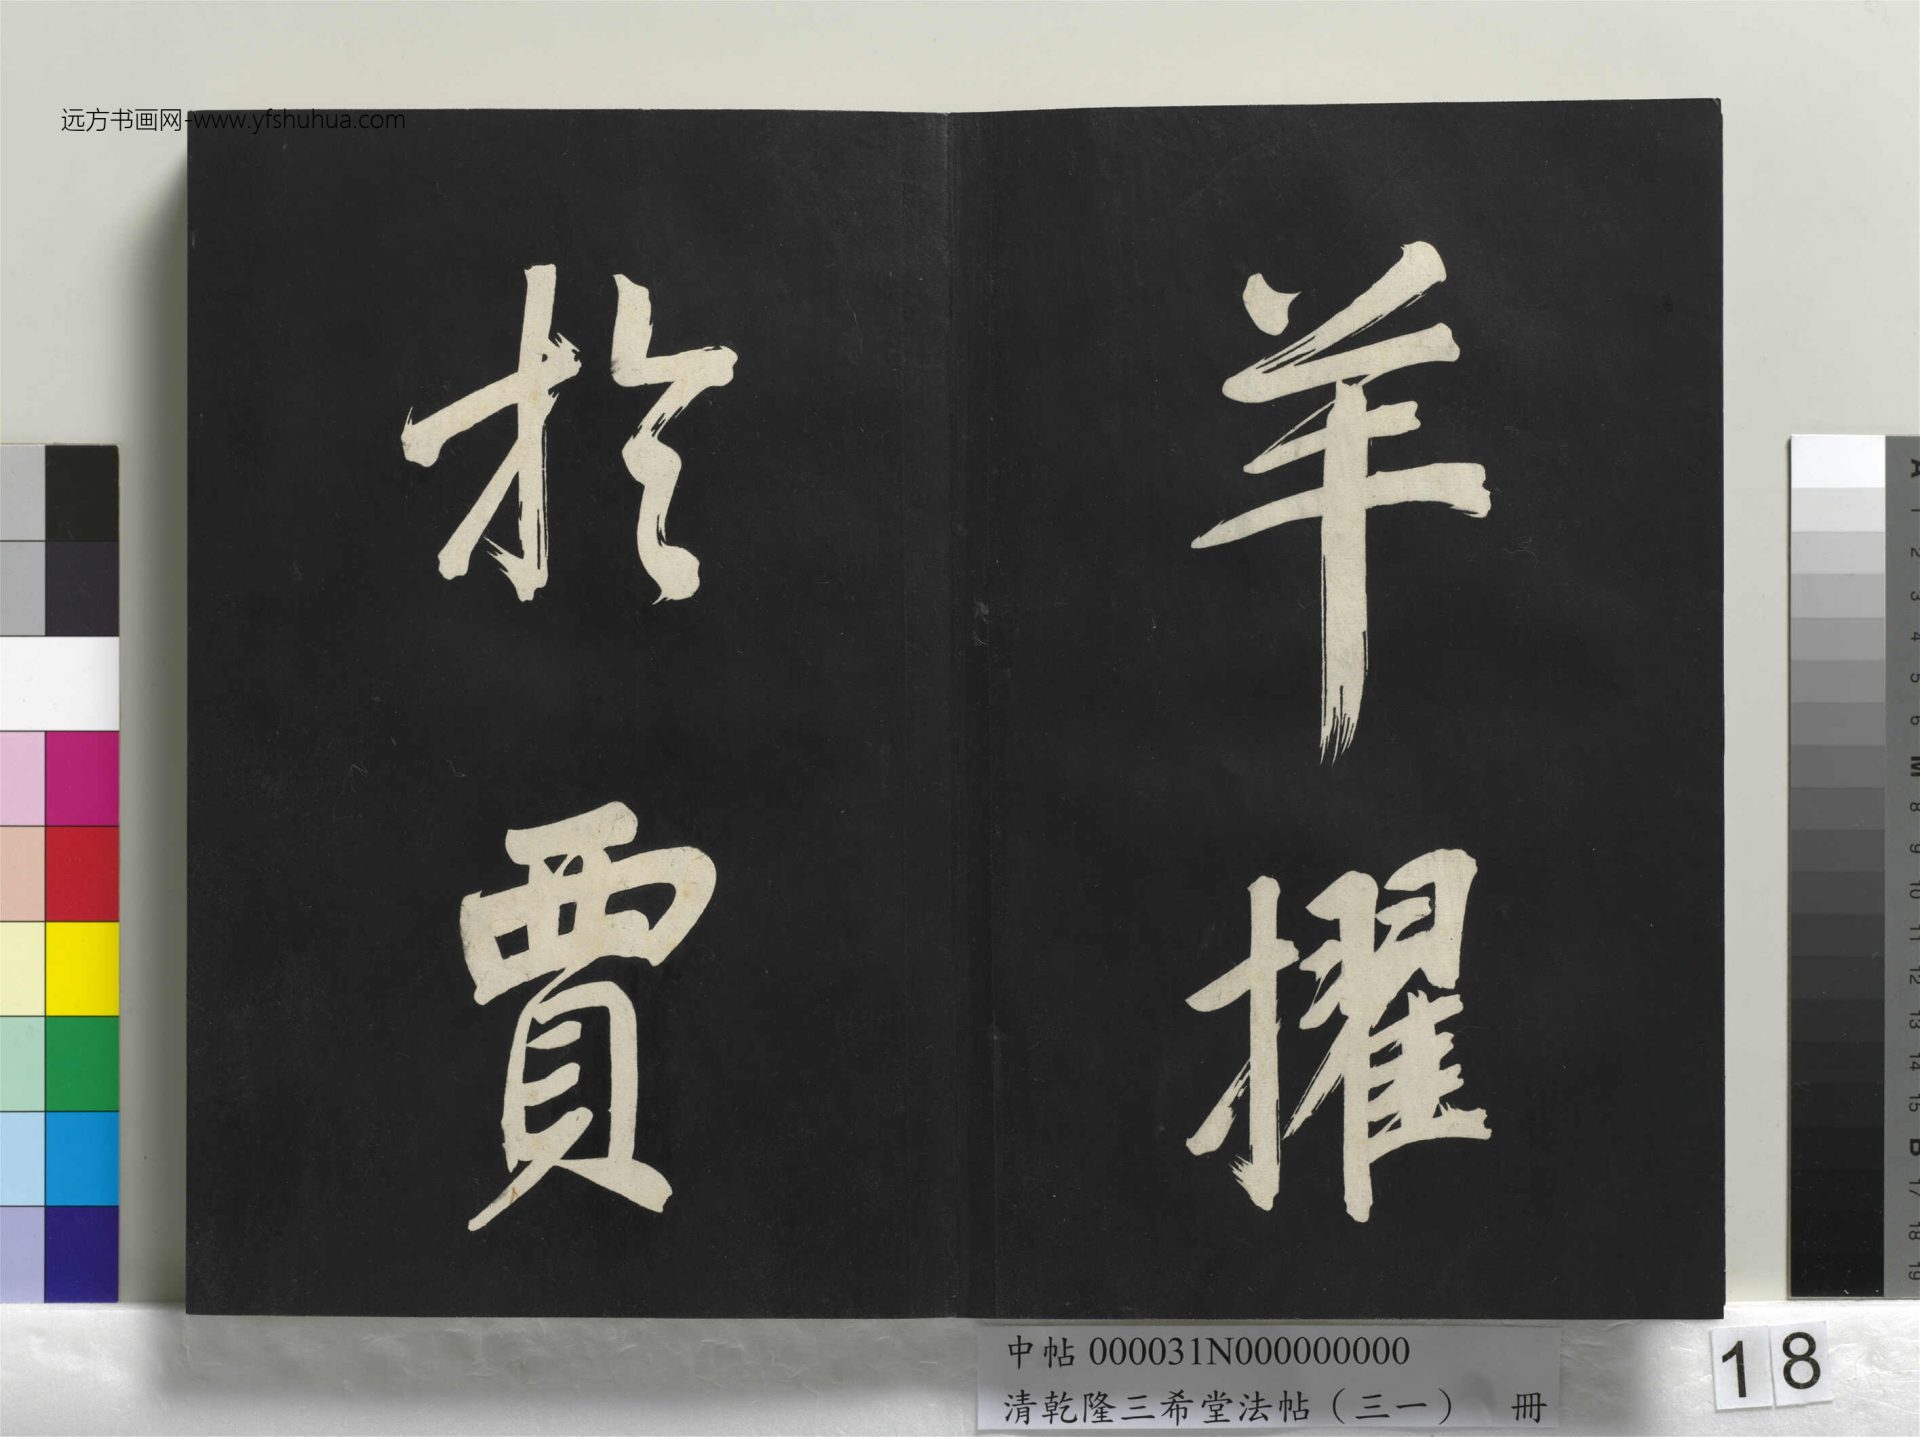 远方书画网-www.yfshuhua.com
羊擢
於賈
中帖 000031N000000000
清乾隆三希堂法帖（三一） 冊
18
A 1 2 3 4 5 6 M 8 9 10 11 12 13 14 15 B 17 18 19